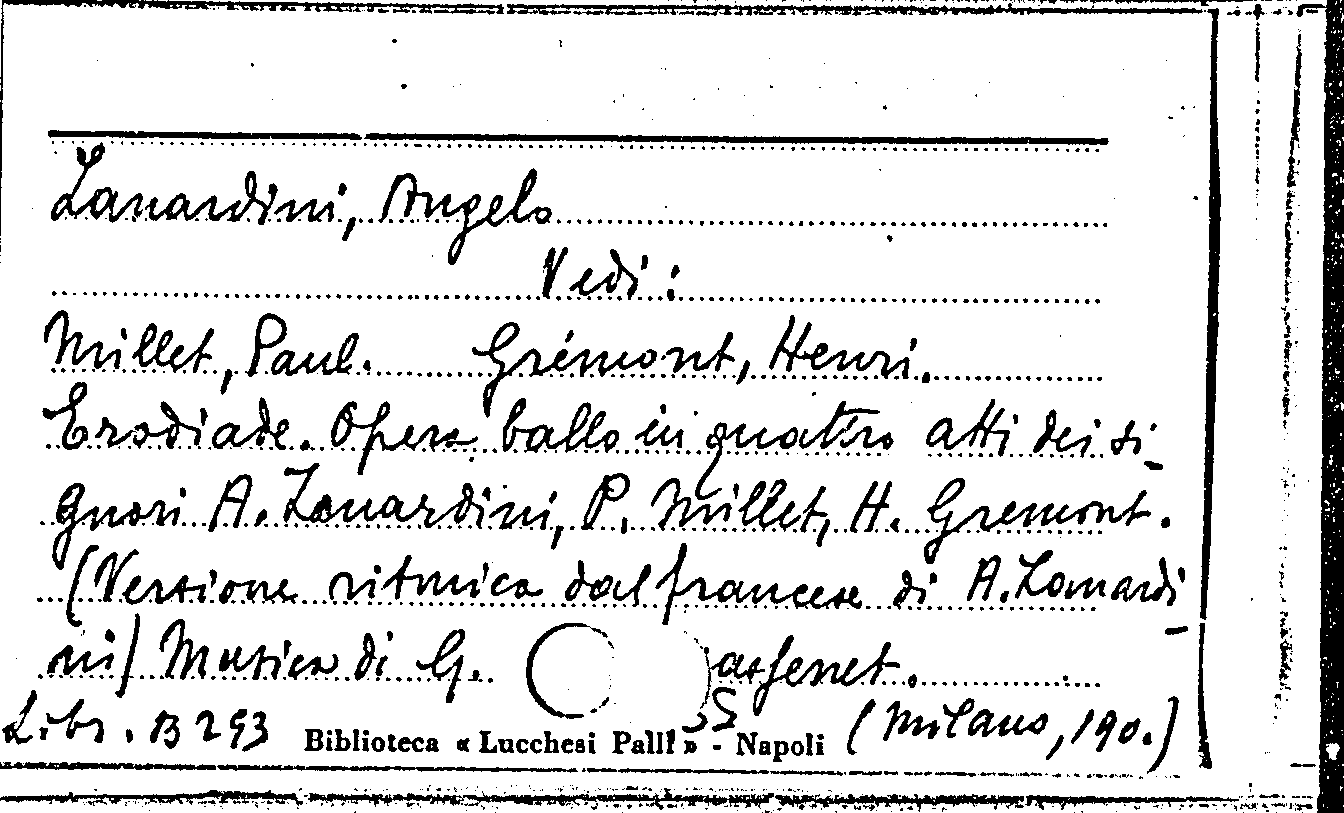 Zanardini, Angelo
Vedi:
Millet, Paul. Grémont, Henri.
Erodiade. Opera ballo in quattro atti dei si-
gnori A. Zanardini, P. Millet, H. Gremont.
(Versione ritmica dal francese di A. Zanardi-
ni) Musica di G. assenet.
Libr. B 293 Biblioteca « Lucchesi Palli » - Napoli (Milano, 190.)